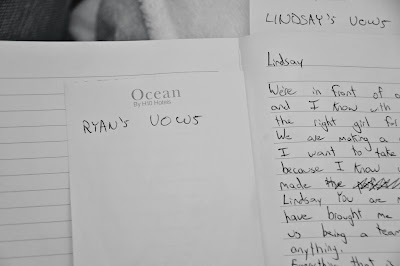 LINDSAY'S VOWS
Ocean
By H10 Hotels
RYAN'S VOWS
Lindsay
We're in front of
and I know with
the right girl for
We are making a
I want to take
because I know
made the
Lindsay You are
have biought me
us being a team
anything.
Everything that is